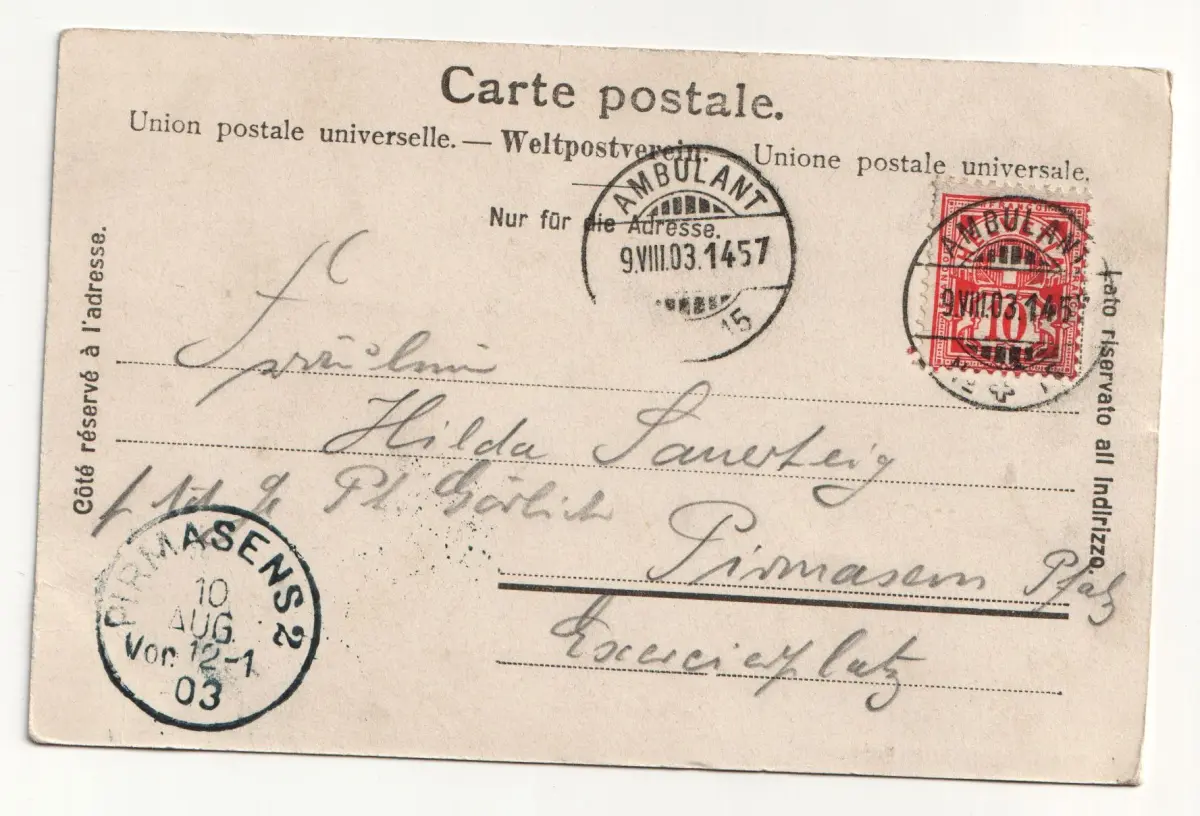 Carte postale.
Union postale universelle. — Weltpostverein. Unione postale universale.
Nur für die Adresse.
Côté réservé à l'adresse.
Lato riservato all Indirizzo.
AMBULANT
9.VIII.03.1457
15
FRANCO
10
AMBULANT
9.VIII.03.145
Fräulein
Hilda Sauerteig
Ph. Görlich
Pirmasens Pfalz
Exercierplatz
PIRMASENS 2
10
AUG.
Vor. 12-1
03